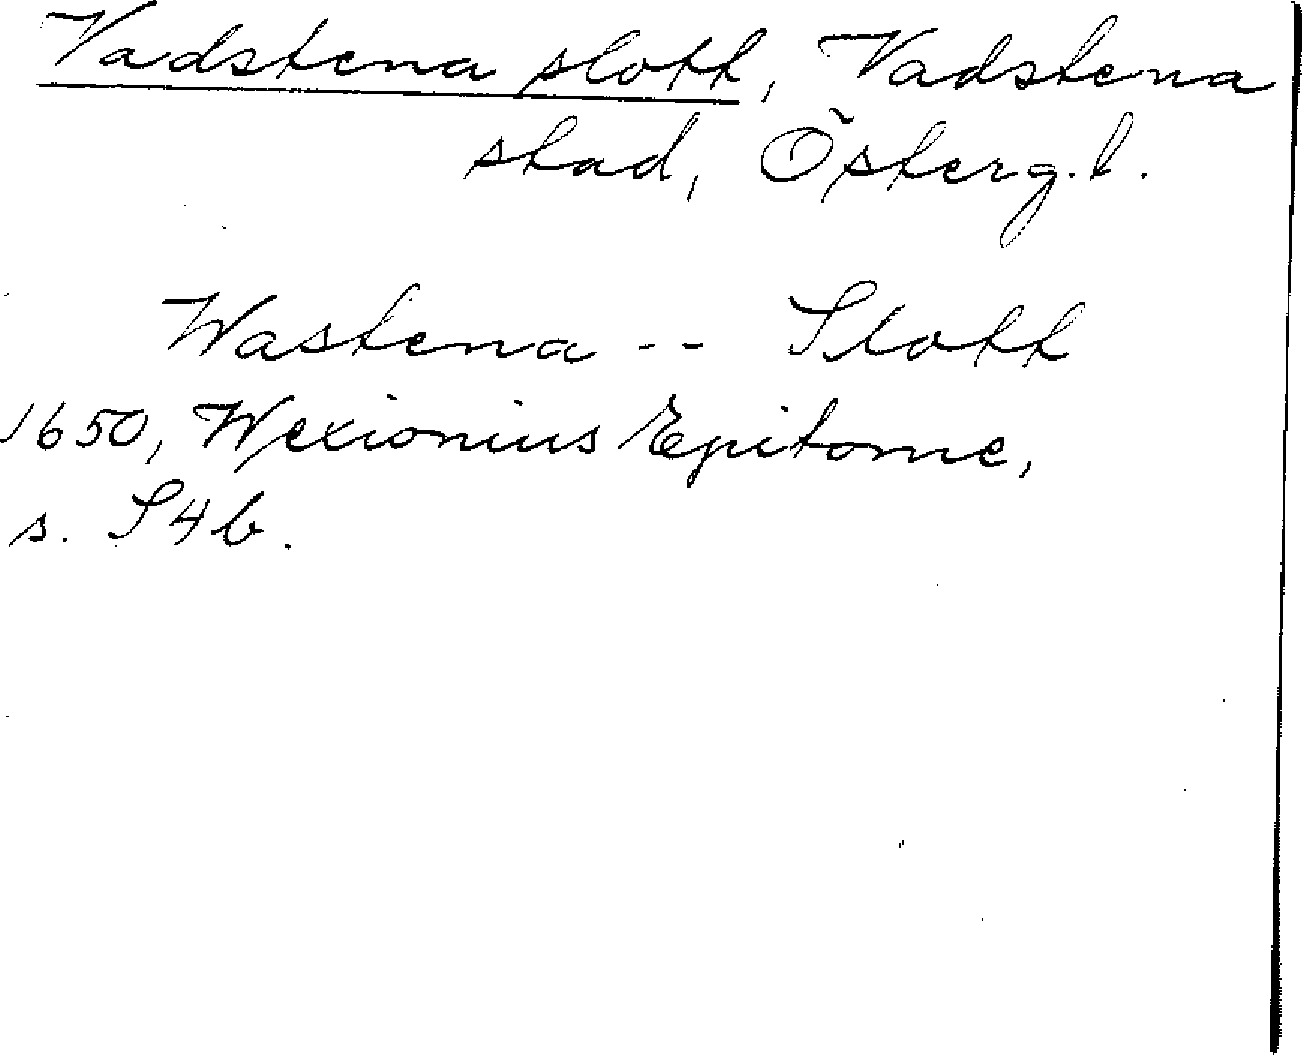 Vadstena slott, Vadstena
stad, Österg.l.
Wastena -- Slott
1650, Wexionius Epitome,
s. S4b.